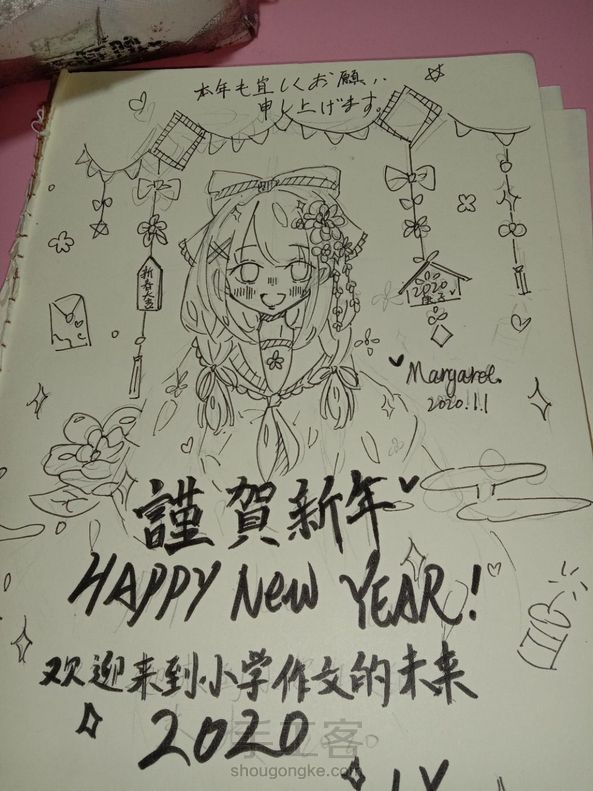 本年も宜しくお願い
申し上げます。
新春大吉
2020
Margaret.
2020.1.1
謹賀新年
HAPPY New YEAR!
欢迎来到小学作文的未来
2020
手工客
shougongke.com